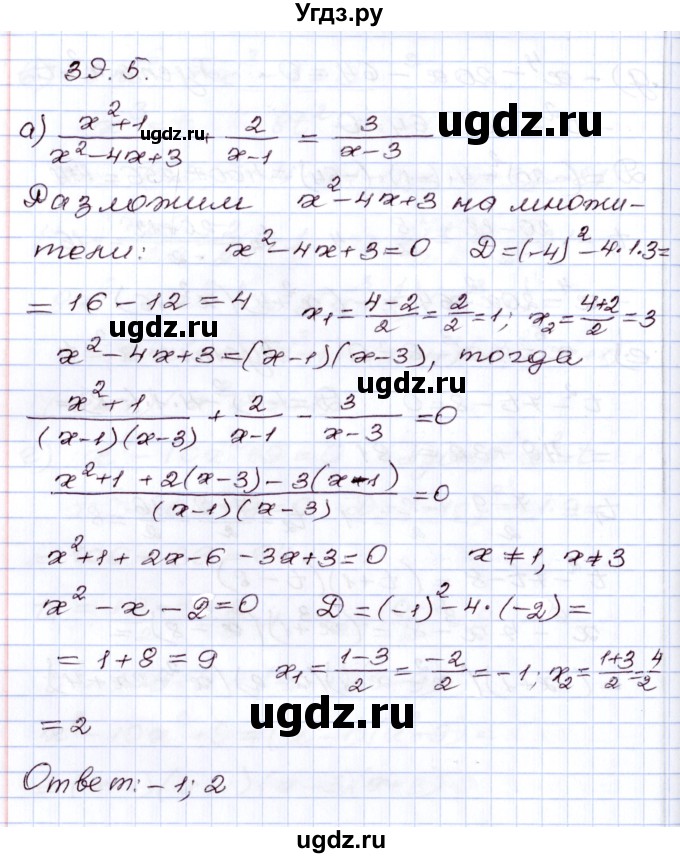 Угдз.ру
39.5.
а) (x²+1)/(x²-4x+3) + 2/(x-1) = 3/(x-3)
ugdz.ru ugdz.ru
Разложим x²-4x+3 на множи-
тели: x²-4x+3=0 D=(-4)²-4·1·3=
= 16-12=4 x₁=(4-2)/2=2/2=1; x₂=(4+2)/2=3
ugdz.ru
x²-4x+3=(x-1)(x-3), тогда
ugdz.ru
(x²+1)/((x-1)(x-3)) + 2/(x-1) - 3/(x-3) =0
(x²+1+2(x-3)-3(x-1))/((x-1)(x-3)) =0
ugdz.ru
x²+1+2x-6-3x+3=0 x≠1, x≠3
x²-x-2=0 D=(-1)²-4·(-2)=
= 1+8=9 x₁=(1-3)/2=-2/2=-1; x₂=(1+3)/2=4/2
=2
ugdz.ru ugdz.ru
Ответ: -1; 2
ugdz.ru